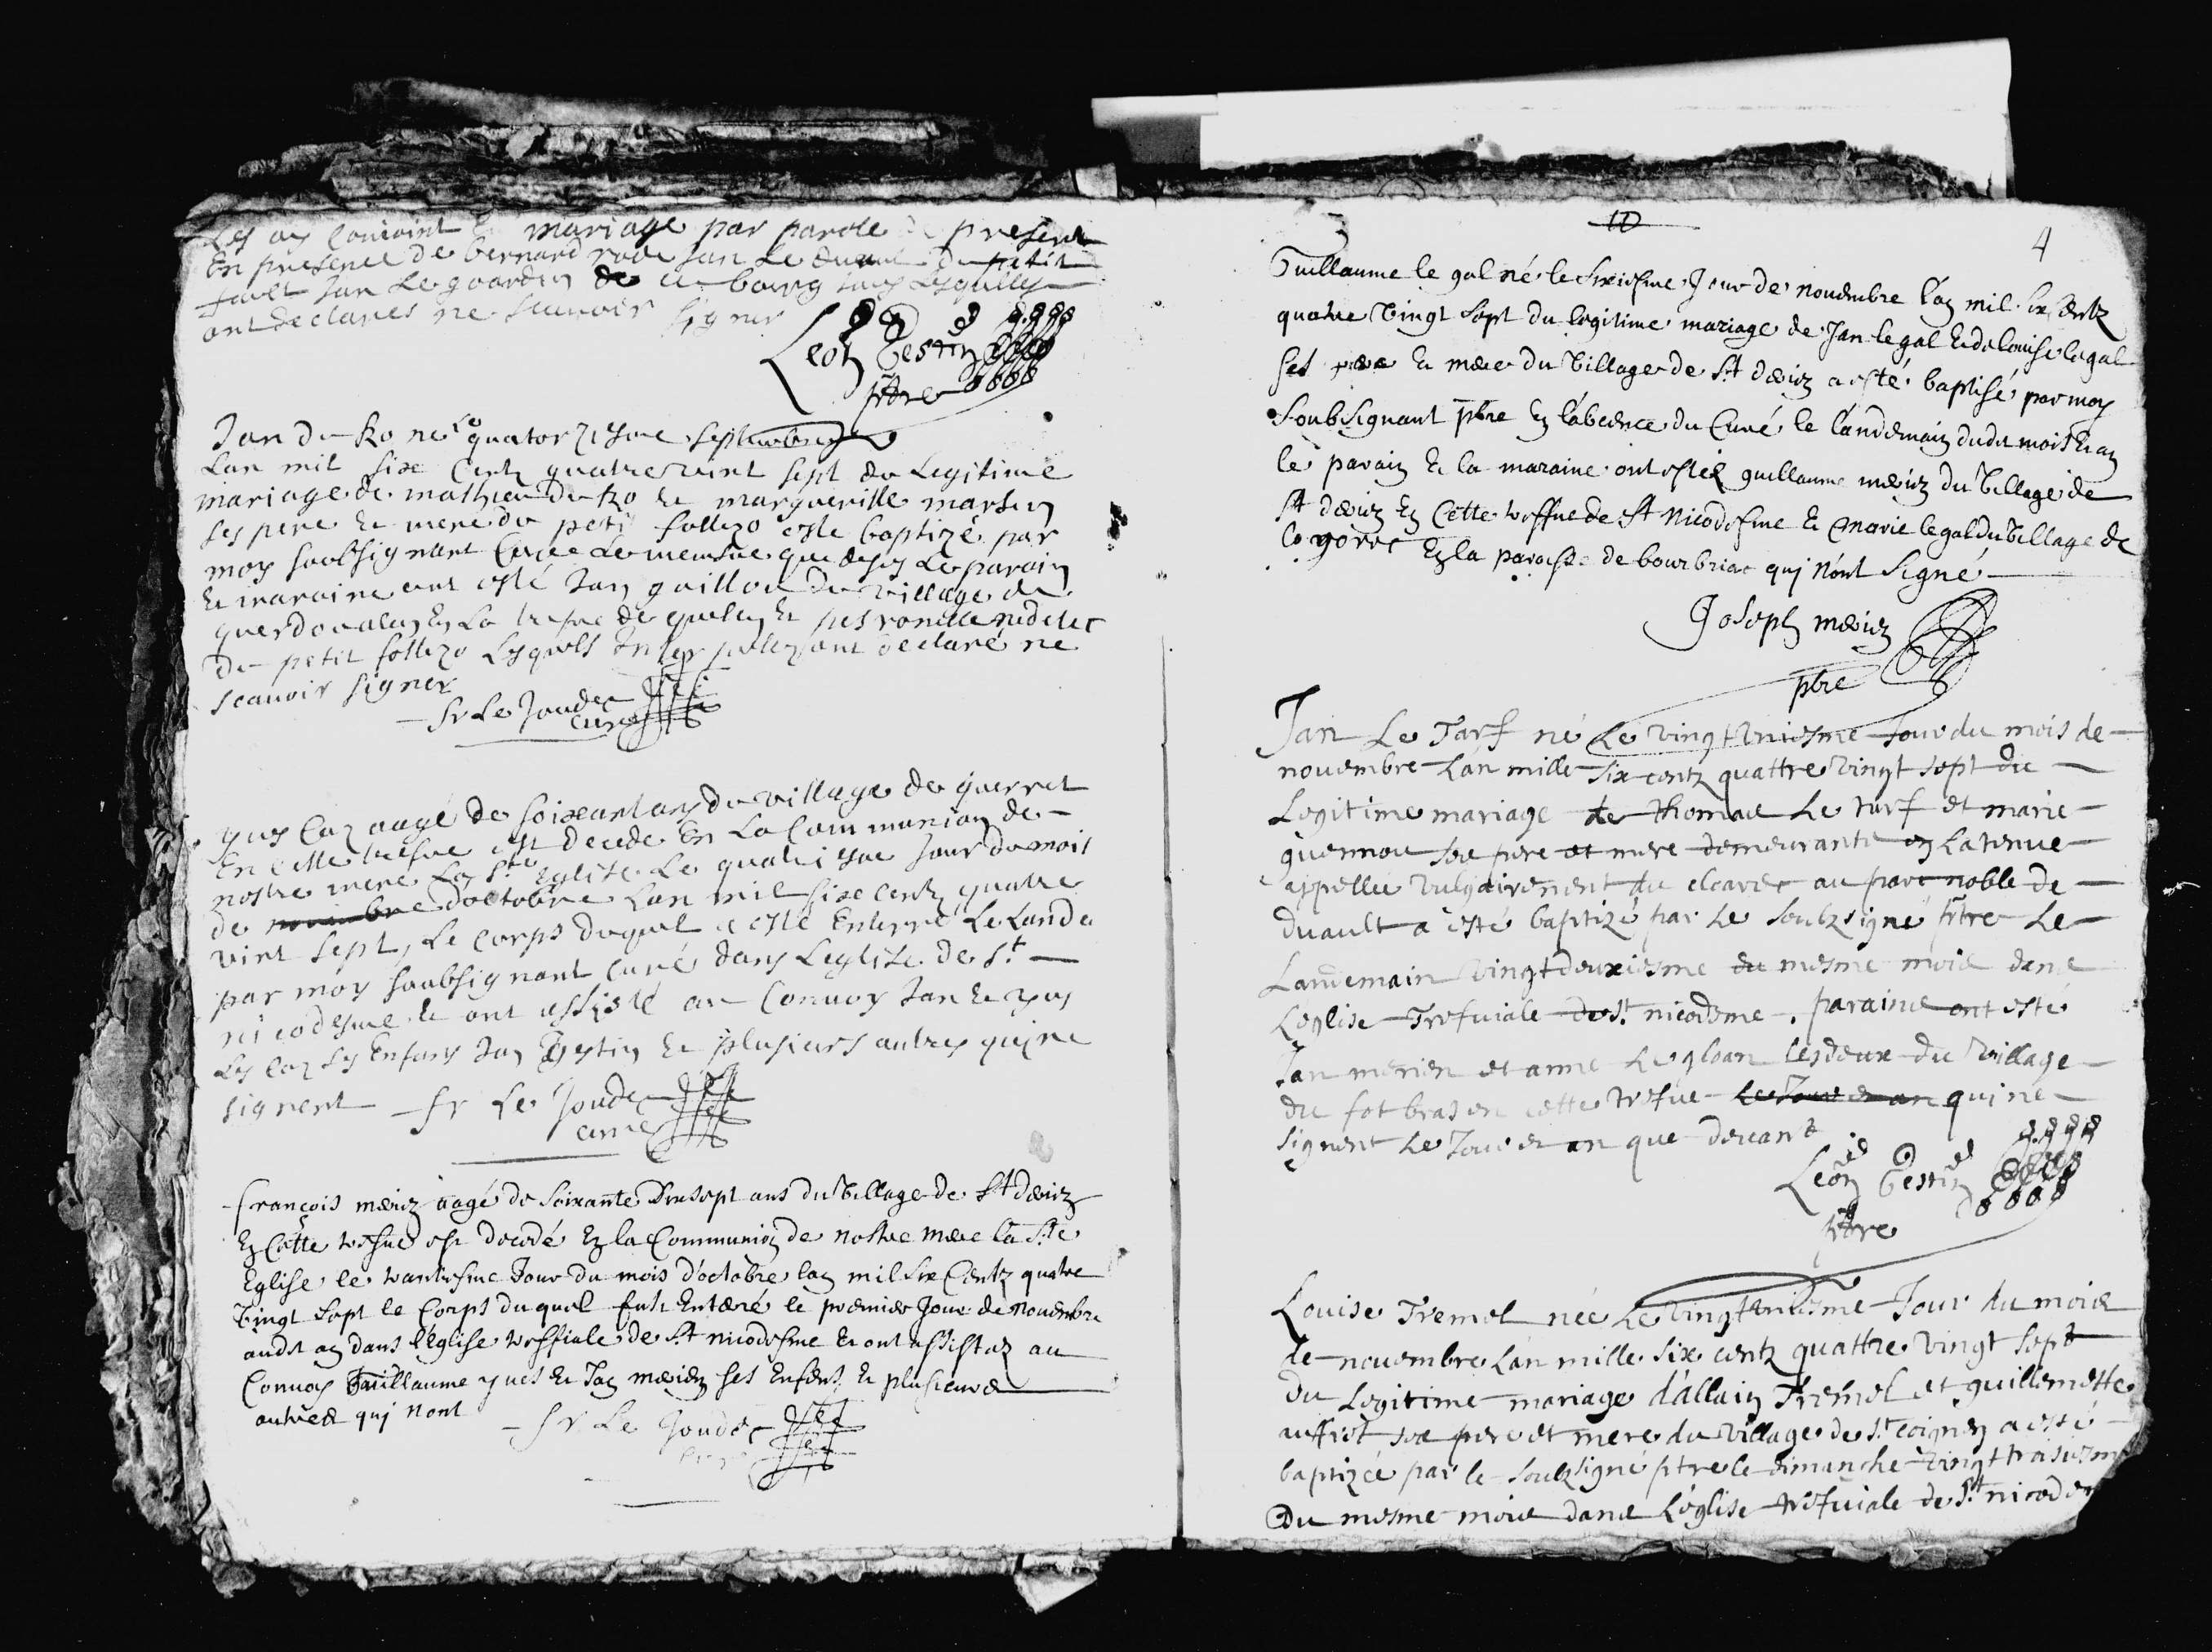 Les ay conioint en mariage par parole de present
En presence de bernard jan Le du petit
jan Le de ce bourg tous Lesquells
ont declares ne scauoir signer
Leon Gestin
ptre
Jan du Ro né le quatorziesme septembre
Lan mil sixe Centz quatrevint sept du Legitime
mariage de mathieu du Ro et margueritte
ses pere et mere du petit follezo esté baptizé par
moy soubsignant Curé Le mensme que desus Le parain
et maraine ont esté Jan guillou du village de
en La trefve de et nedelec
du petit follezo Lesquels ont declaré ne
scauoir signer
fr Le Joudec
curé
yves Caz aagé de soixantans du village de querret
En cette trefve est decedé En La Communion de
nostre mere La Ste Eglise Le quatriesme jour du mois
de novembre d'octobre Lan mil sixe Centz quatre
vint sept, Le corps duquel a esté Enterré Le Lande
par moy soubsignant curé dans Leglise de St
nicodesme et ont assisté au Conuoy Jan et yves
Les Caz ses Enfans Jan gestin et plusieurs autres qui ne
signent fr Le Joudec
curé
françois mérien aagé de soixante dixsept ans du Village de St
En Cette trefve est decedé En la Communion de nostre mere la Ste
Eglise le trantiesme Jour du mois d'octobre lan mil six Centz quatre
Vingt sept le Corps duquel fust Enterré le premier Jour de Nouembre
audit an dans l'église treffiale de St nicodesme et ont assistez au
Conuoy Guillaume yues et Jan merien ses Enfens et plusieurs
autres qui Nont
fr Le Joudec
10
4
Guillaume le gal né le sixiesme Jour de nouembre l'an mil six Centz
quatre Vingt sept du legitime mariage de Jan le gal et de louise le gal
ses pere et mere du Village de St a esté baptisé par moy
Soubsignant pbre En labcence du Curé le landemain dudit mois et an
le parain et la maraine ont estés guillaume merien du Village de
St En Cette treffue de St Nicodesme et marie le gal du Village de
En la paroisse de bourbriac qui N'ont Signé
Joseph merien
pbre
Jan Le Tarf né Le vingt vniesme Jour du mois de
nouembre L'an mille six centz quattre vingt sept du
Legitime mariage de thomas Le tarf et marie
quennou ses pere et mere demeurants en La tenue
appellée vulgairement du au parc noble de
duault a esté baptizé par Le soubzsigné ptre Le
Landemain vingt deuxiesme du mesme mois dans
L'eglise Trefuiale de St nicodeme. parains ont esté
Jan merien et anne Le gloan les deux du village
du fot bras en cette trefue Le Jour et an qui ne
signent Le Jour et an que deuant
Leon Gestin
ptre
Louise Tremel née Le Vingt vniesme Jour du mois
de nouembre L'an mille six centz quattre vingt sept
Du Legitime mariage d'allain Tremel et guillemette
auffret ses pere et mere du village de St a esté
baptizée par le soubzsigné ptre le dimanche vingt troisiesm
Du mesme mois dans L'eglise trefuiale de St nicodem